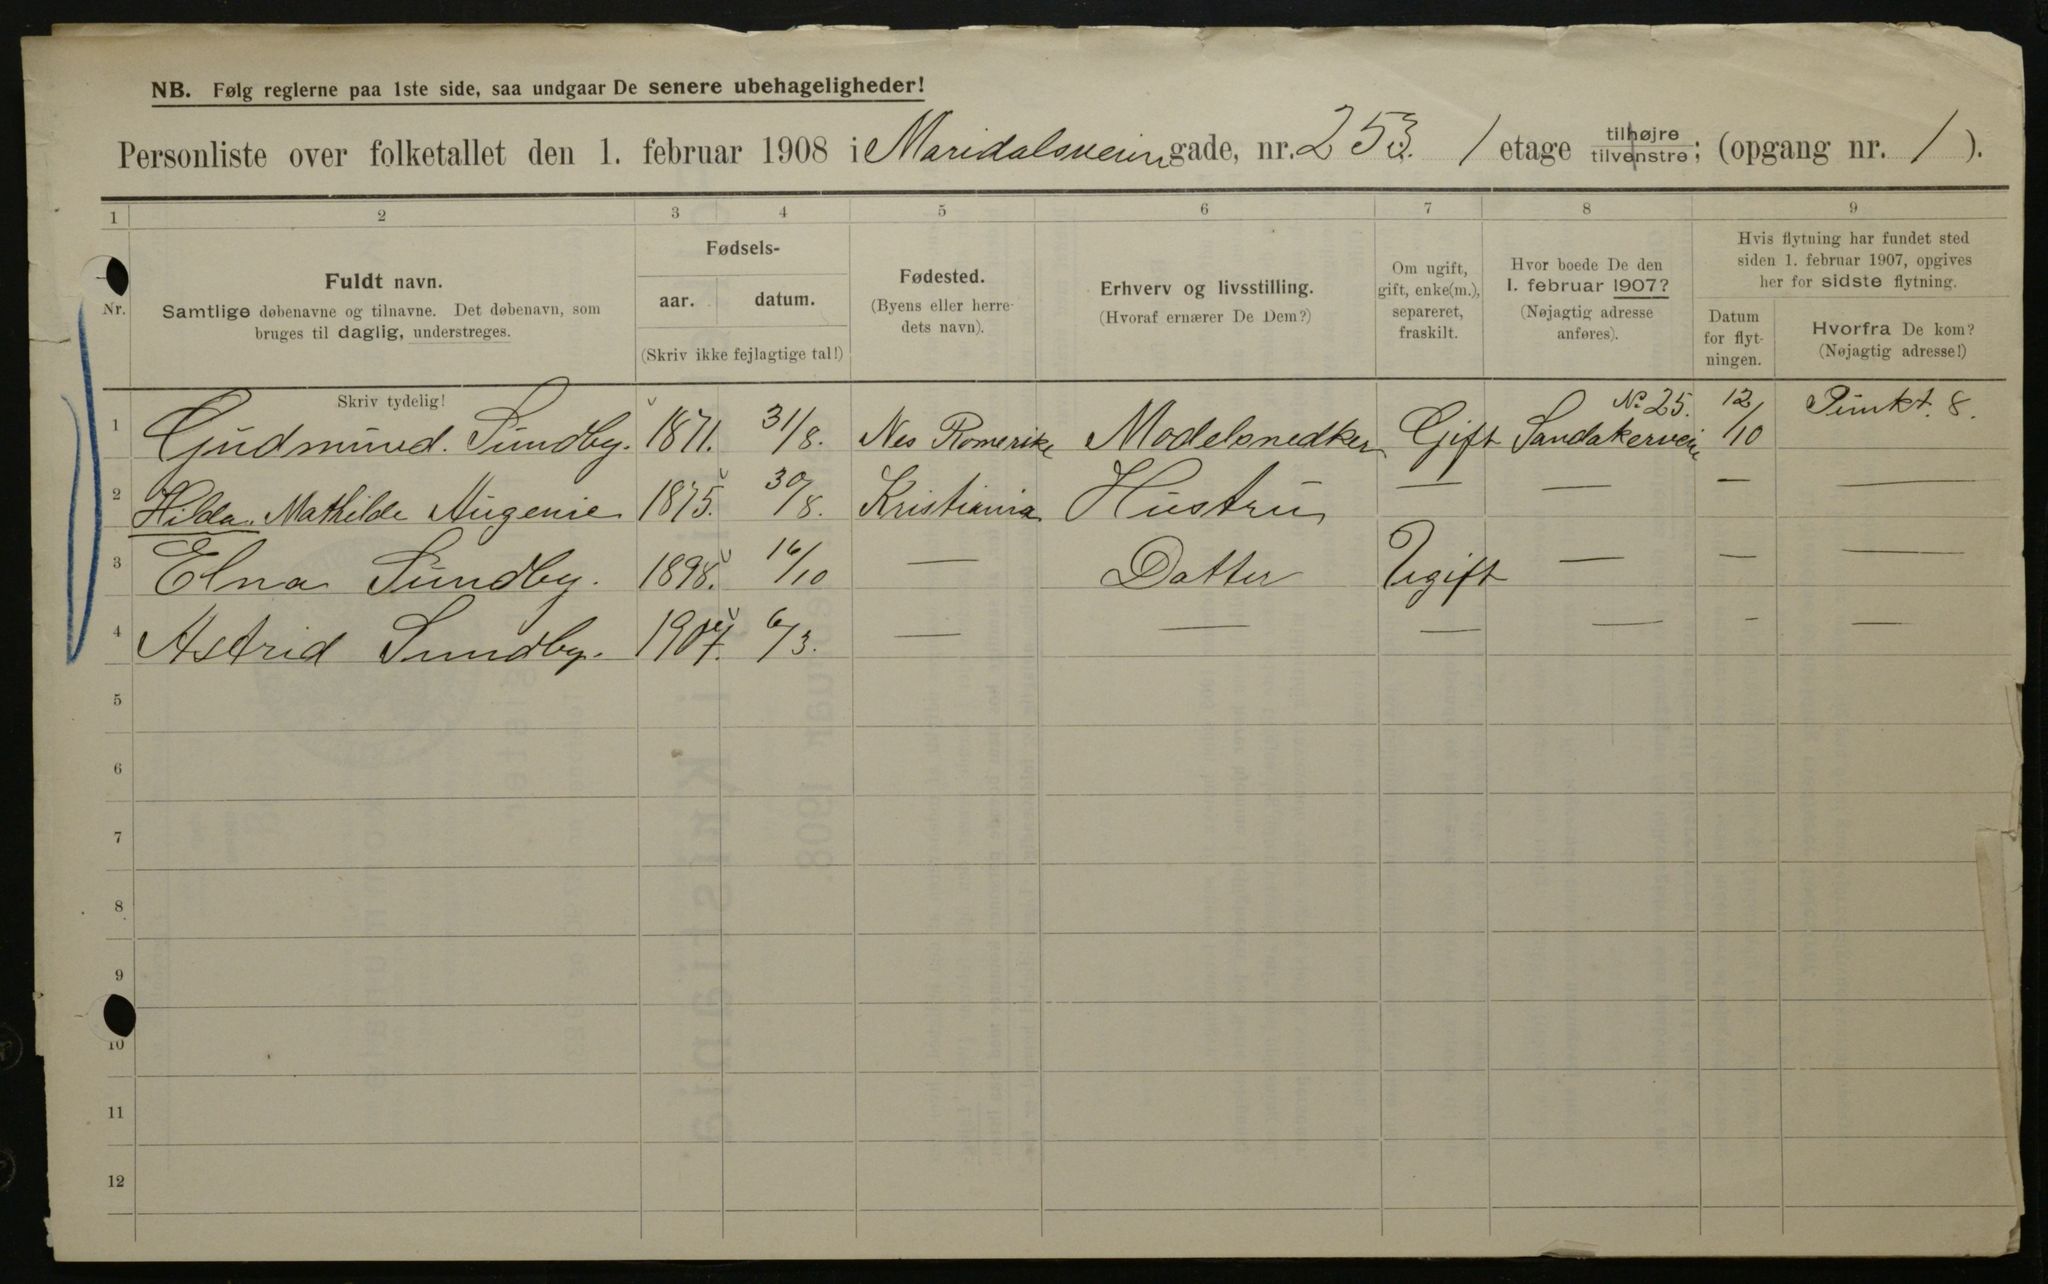 NB. Følg reglerne paa 1ste side, saa undgaar De senere ubehageligheder!
Personliste over folketallet den 1. februar 1908 i Maridalsveien gade, nr. 253. 1 etage tilhøjre tilvenstre; (opgang nr. 1 ).
1 2 3 4 5 6 7 8 9
Nr.
Fuldt navn.
Samtlige døbenavne og tilnavne. Det døbenavn, som
bruges til daglig, understreges.
Skriv tydelig!
Fødsels-
aar. datum.
(Skriv ikke fejlagtige tal!)
Fødested.
(Byens eller herre-
dets navn).
Erhverv og livsstilling.
(Hvoraf ernærer De Dem?)
Om ugift,
gift, enke(m.),
separeret,
fraskilt.
Hvor boede De den
1. februar 1907?
(Nøjagtig adresse
anføres).
Hvis flytning har fundet sted
siden 1. februar 1907, opgives
her for sidste flytning.
Datum
for flyt-
ningen.
Hvorfra De kom?
(Nøjagtig adresse!)
1 Gudmund. Sundby. 1871. 31/8. Nes Romerike Modelsnedker Gift Sandakerveien No 25. 12/10 Punkt. 8.
2 Hilda. Mathilde Augenie 1875. 30/8. Kristiania Hustru — — — —
3 Elna Sundby. 1898. 16/10 — Datter Ugift — — —
4 Astrid Sundby. 1907. 6/3. — — — — - —
5
6
7
8
9
10
11
12